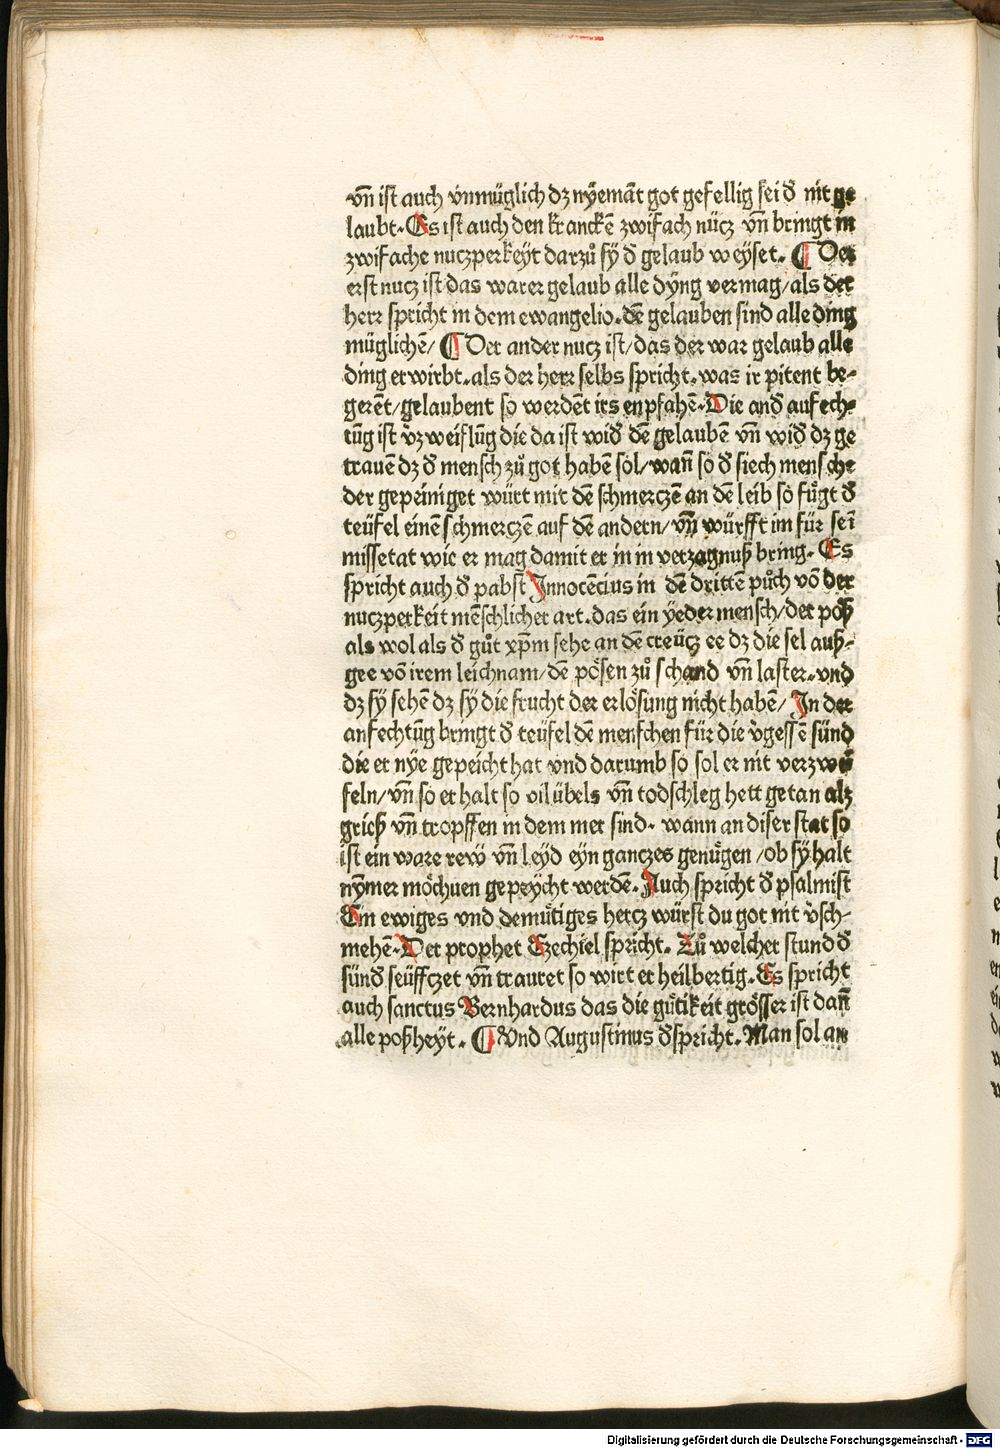 vn̄ ist auch vnmüglich dz nÿemāt got gefellig sei đ nit ge
laubt. Es ist auch den kranckē zwifach nücz vn̄ bringt in
zwifache nuczperkeÿt darzů sÿ đ gelaub weÿset. ¶ Der
erst nucz ist das warer gelaub alle dÿng vermag/als der
herr spricht in dem ewangelio. dē gelauben sind alle ding
müglichē/ ¶ Der ander nucz ist/das der war gelaub alle
ding erwirbt. als der herr selbs spricht. was ir pitent be⸗
gerēt/gelaubent so werdēt irs enpfahē. Die and̄ aufech⸗
tūg ist v̄zweiflūg die da ist wid̄ dē gelaubē vn̄ wid̄ dz ge
trauē dz đ mensch zů got habē sol/wan̄ so đ siech mensche
der gepeiniget würt mit dē schmerczē an dē leib so fůgt đ
teüfel einē schmerczē auf dē andern/vn̄ würfft im für sei
missetat wie er mag damit er in in verzagnuß bring. Es
spricht auch đ pabst Innocēcius in dē drittē půch vō der
nuczperkeit mēschlicher art. das ein ÿeder mensch/der pöß
als wol als đ gůt xp̄m sehe an dē creücz ee dz die sel auß⸗
gee vō irem leichnam/dē pösen zů schand vn̄ laster. vnd
dz sÿ sehē dz sÿ die frucht der erlösung nicht habē/ In der
anfechtūg bringt đ teüfel dē menschen für die v̄gessē sünd
die er nÿe gepeicht hat vnd darumb so sol er nit verzwei
feln/vn̄ so er halt so vil übels vn̄ todschleg hett getan alz
grieß vn̄ tropffen in dem mer sind. wann an diser stat so
ist ein ware rew vn̄ leyd eÿn ganczes genügen/ob sÿ halt
nÿmer möchuen gepeÿcht werdē. Auch spricht đ psalmist
Ein ewiges vnd demütiges hercz würst du got nit v̄sch⸗
mehē. Der prophet Ezechiel spricht. Zů welcher stund đ
sünd̄ seüffczet vn̄ trauret so wirt er heilbertig. Es spricht
auch sanctus Bernhardus das die gütikeit grösser ist dan̄
alle poßheÿt. ¶ Vnd Augustinus đspricht. Man sol an
Digitalisierung gefördert durch die Deutsche Forschungsgemeinschaft - DFG